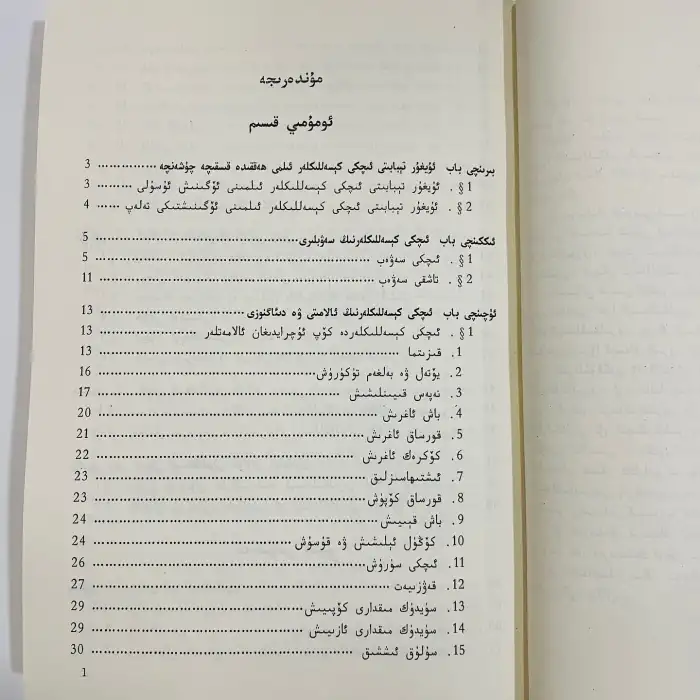 مۇندەرىجە
ئومۇمىي قىسىم
بىرىنچى باب ئۇيغۇر تېبابىتى ئىچكى كېسەللىكلەر ئىلمى ھەققىدە قىسقىچە چۈشەنچە ............... 3
§ 1. ئۇيغۇر تېبابىتى ئىچكى كېسەللىكلەر ئىلمىنى ئۆگىنىش ئۇسۇلى ......... 3
§ 2. ئۇيغۇر تېبابىتى ئىچكى كېسەللىكلەر ئىلمىنى ئۆگىنىشتىكى تەلەپ ...... 4
ئىككىنچى باب ئىچكى كېسەللىكلەرنىڭ سەۋبلىرى ............... 5
§ 1. ئىچكى سەۋەب ............... 5
§ 2. تاشقى سەۋەب ............... 11
ئۈچىنچى باب ئىچكى كېسەللىكلەرنىڭ ئالامىتى ۋە دىئاگنوزى ............... 13
§ 1. ئىچكى كېسەللىكلەردە كۆپ ئۇچرايدىغان ئالامەتلەر ............... 13
1. قىزىتما ............... 13
2. يۆتەل ۋە بەلغەم تۈكۈرۈش ............... 16
3. نەپەس قىيىنلىشىش ............... 17
4. باش ئاغرىش ............... 20
5. قورساق ئاغرىش ............... 21
6. كۆكرەك ئاغرىش ............... 22
7. ئىشتىھاسىزلىق ............... 23
8. قورساق كۆپۈش ............... 23
9. باش قېيىش ............... 24
10. كۆڭۈل ئېلىشىش ۋە قۇسۇش ............... 24
11. ئىچكى سۈرۈش ............... 26
12. قەۋزىيەت ............... 27
13. سۈيدۈك مىقدارى كۆپىيىش ............... 29
14. سۈيدۈك مىقدارى ئازىيىش ............... 29
15. سۇلۇق ئىششىق ............... 30
1